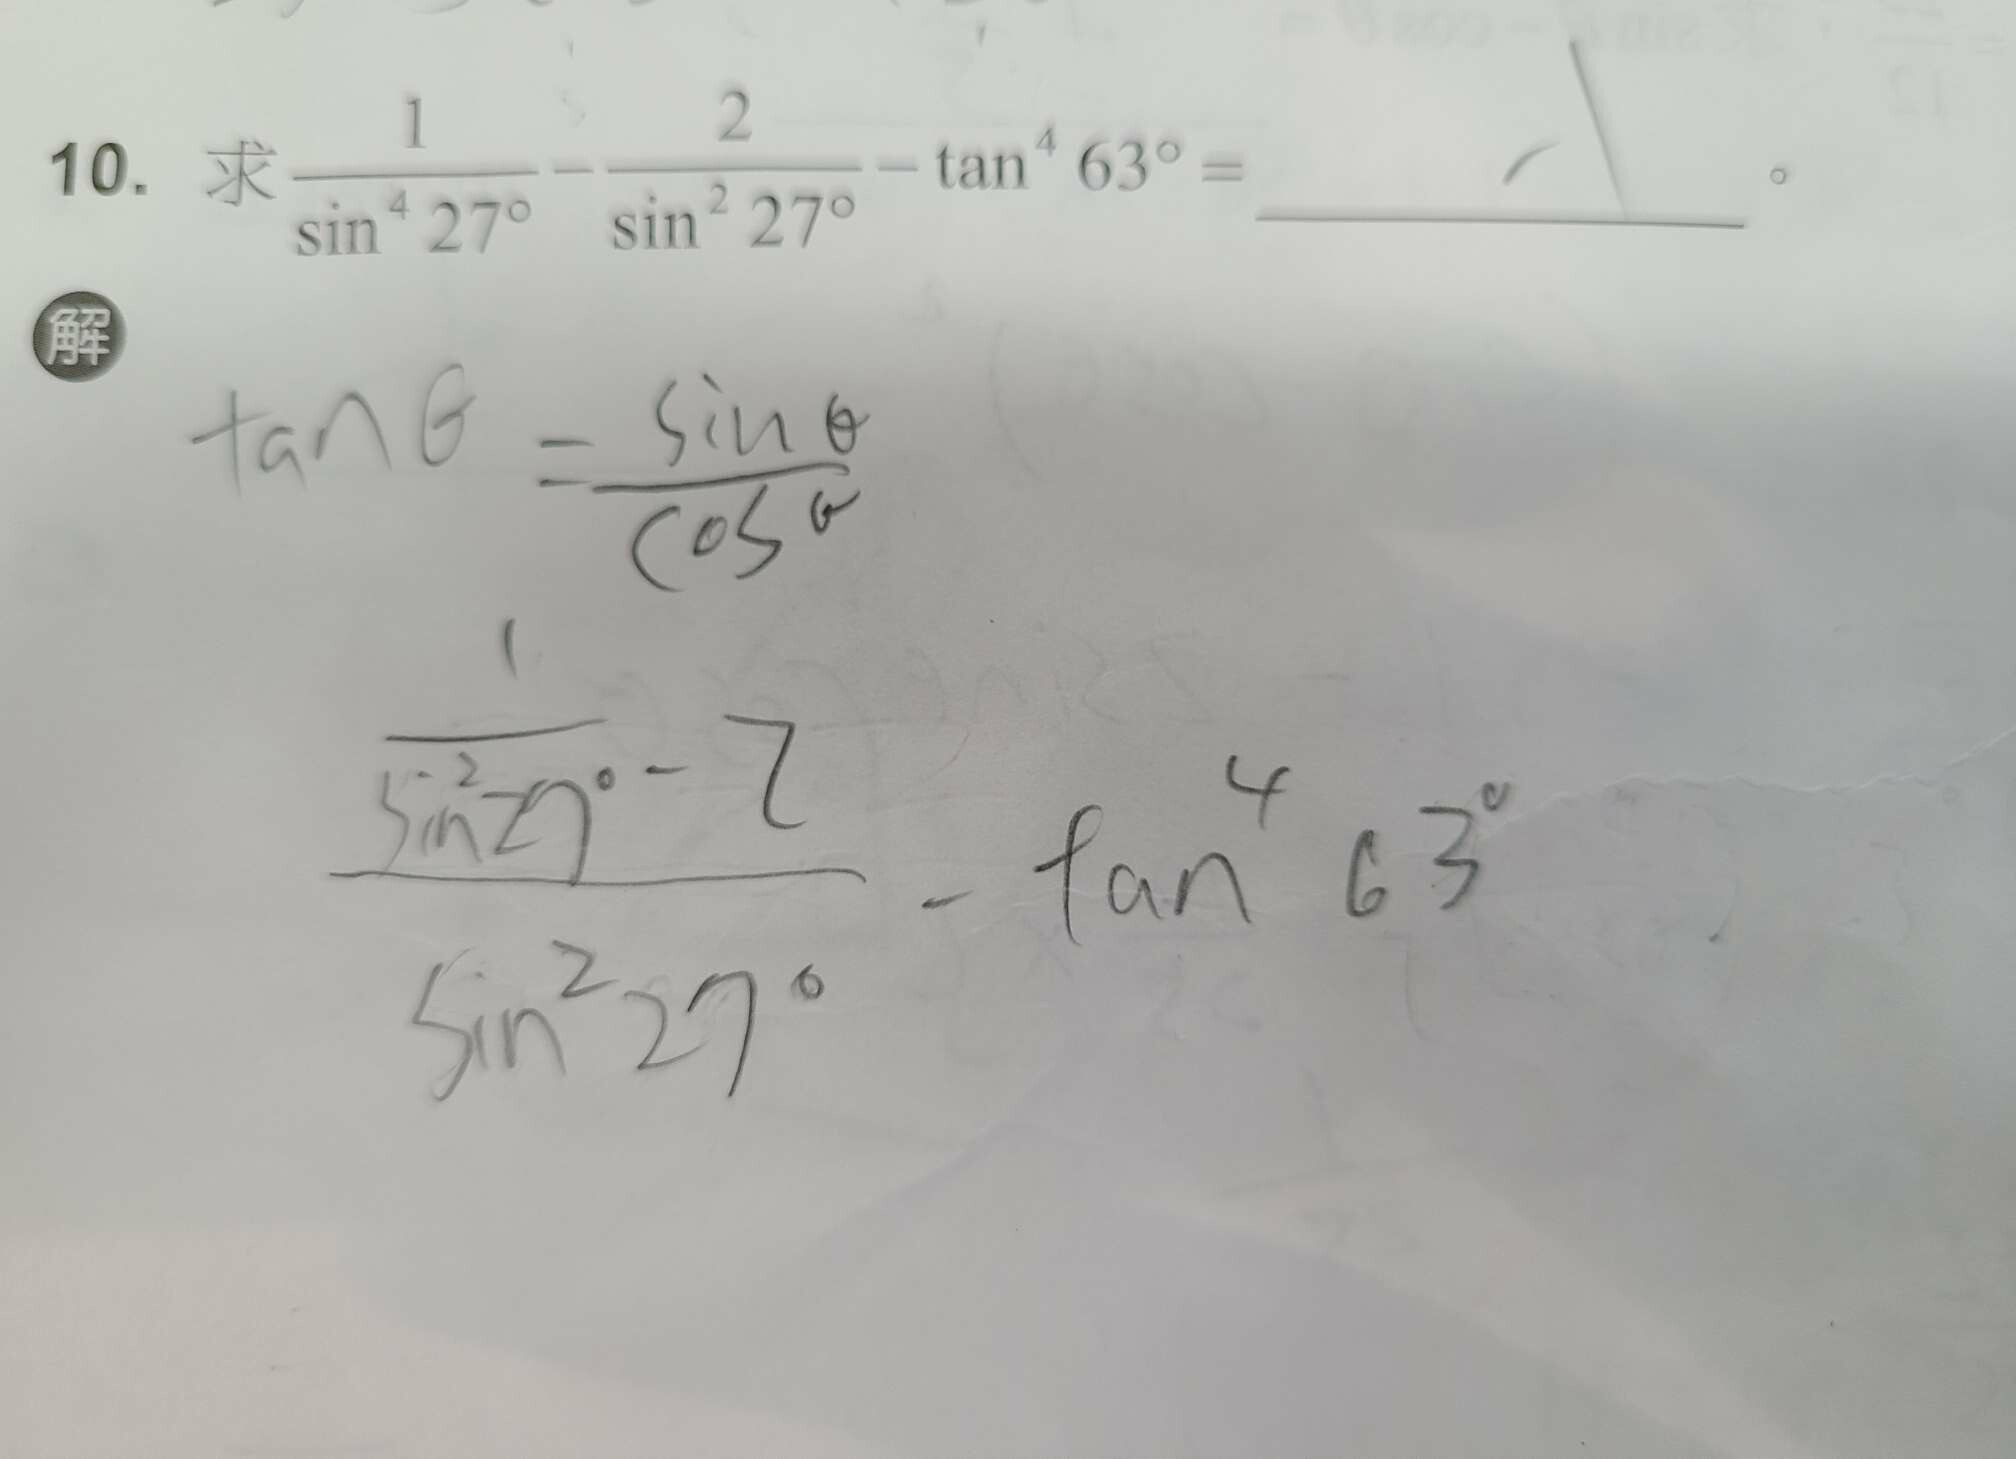 10. 求 1/sin⁴ 27° − 2/sin² 27° − tan⁴ 63° = ________ 。
解
tan θ = sin θ / cos θ
(1/sin² 27° − 2) / sin² 27° − tan⁴ 63°